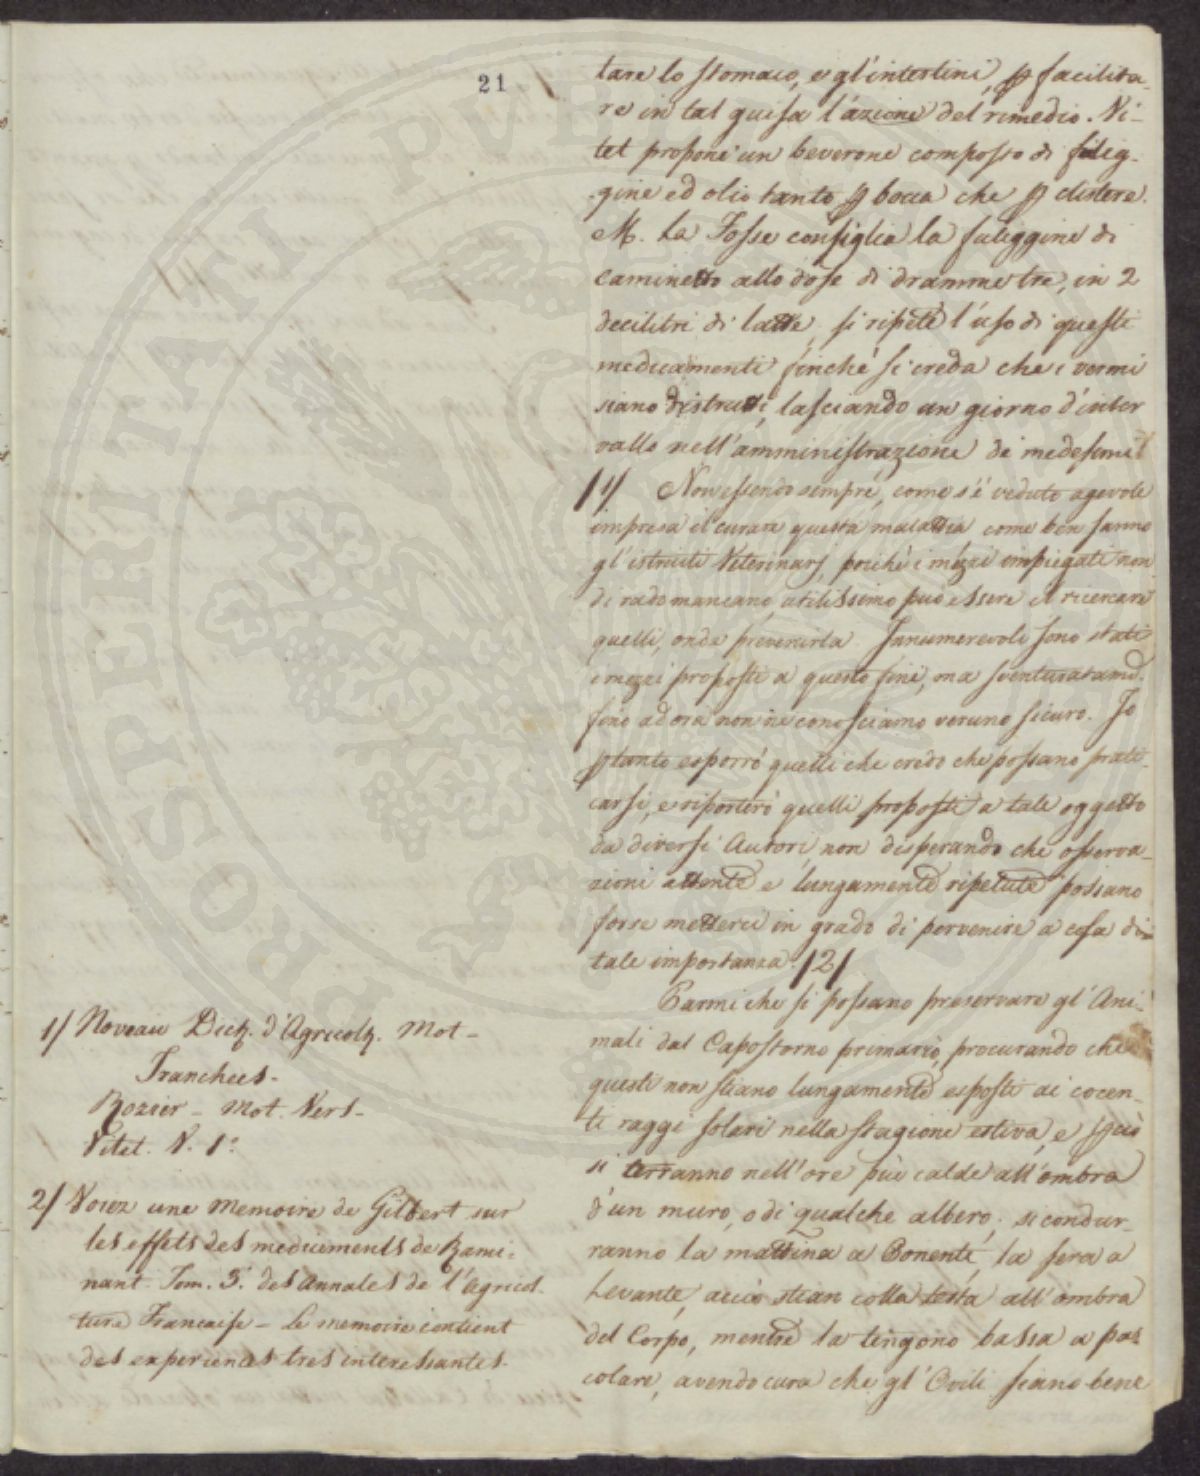 21
tare lo stomaco, e gl'intestini, p facilita-
re in tal guisa l'azione del rimedio. Vi-
tet propone un beverone composto di fulig-
gine ed olio tanto p bocca che p clistere.
M. La Fosse consiglia la fuliggine di
caminetto allo dose di dramme tre, in 2
decilitri di latte, si ripete l'uso di questi
medicamenti finchè si creda che i vermi
siano distrutti, lasciando un giorno d'inter
vallo nell'amministrazione de medesimi
/1/ Non essendo sempre, come s'è veduto agevole
impresa il curare questa malattia come ben sanno
gl'istruiti Veterinarj, poichè i mezzi impiegati non
di rado mancano, utilissimo può essere il ricercare
quelli, onde prevenirla. Innumerevoli sono stati
i mezzi proposti a questo fine, ma sventuratamd.
fino ad ora non ne conosciamo veruno sicuro. Io
ptanto esporrò quelli che credo che possano prati-
carsi, e riporterò quelli proposti a tale oggetto
da diversi Autori, non disperando che osserva-
zioni attente e lungamente ripetute possano
forse metterci in grado di pervenire a cosa di
tale importanza. /2/
Parmi che si possano preservare gl'Ani-
mali dal Capostorno primario, procurando che
questi non stiano lungamente esposti ai cocen-
ti raggi solari nella stagione estiva, e pciò
si terranno nell'ore più calde all'ombra
d'un muro, o di qualche albero; si condur-
ranno la mattina a Ponente, la sera a
Levante, acciò stian colla testa all'ombra
del Corpo, mentre la tengono bassa a pas
colare, avendo cura che gl'Ovili siano bene
1/ Noveau Dictz. d'Agricoltz. Mot-
Tranchees-
Rozier - Mot. Vers-
Vitet. V. 1°
2/ Voiez une Memoire de Gilbert sur
les effets des medicements de Rami-
nant. Tom. 3. des Annales de l'Agricol-
ture Francaise - Le memoire contient
des experiences tres interessantes.
PROSPERITATI PVBLIC